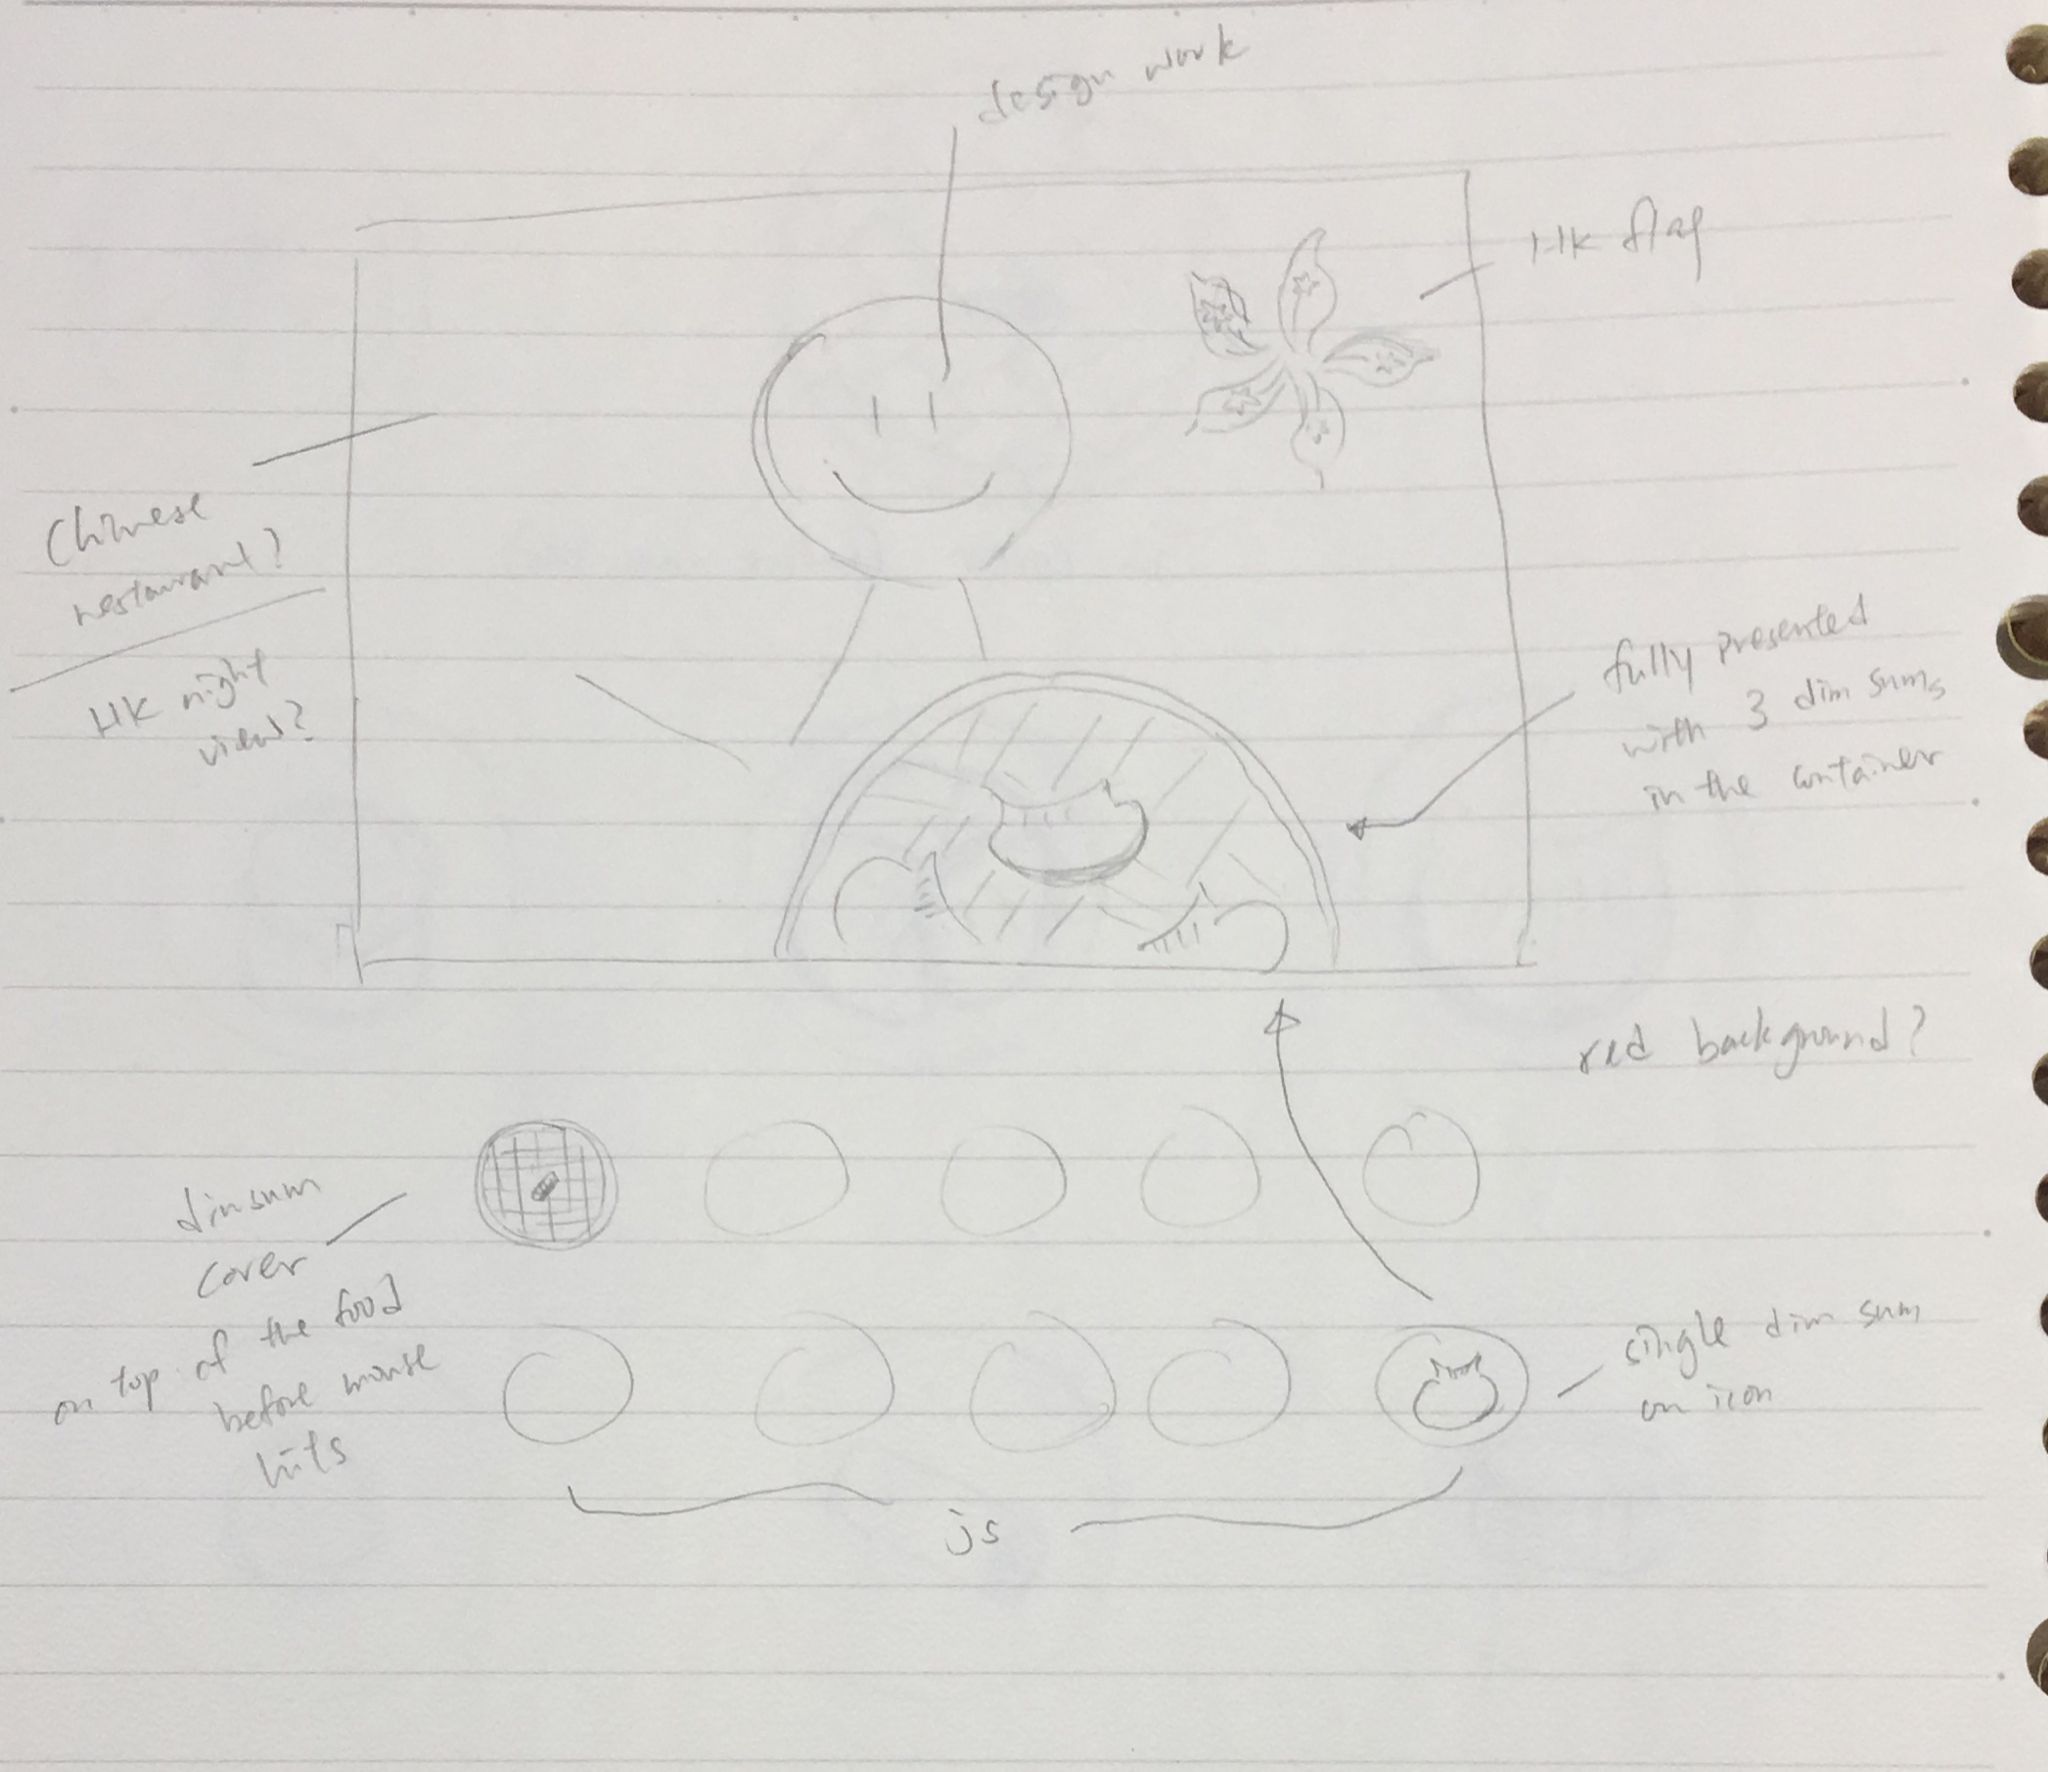 design work
HK flag
Chinese
restaurant?
HK night
view?
fully presented
with 3 dim sums
in the container
red background?
dimsum
cover
on top of the food
before mouse
hits
single dim sum
on icon
js